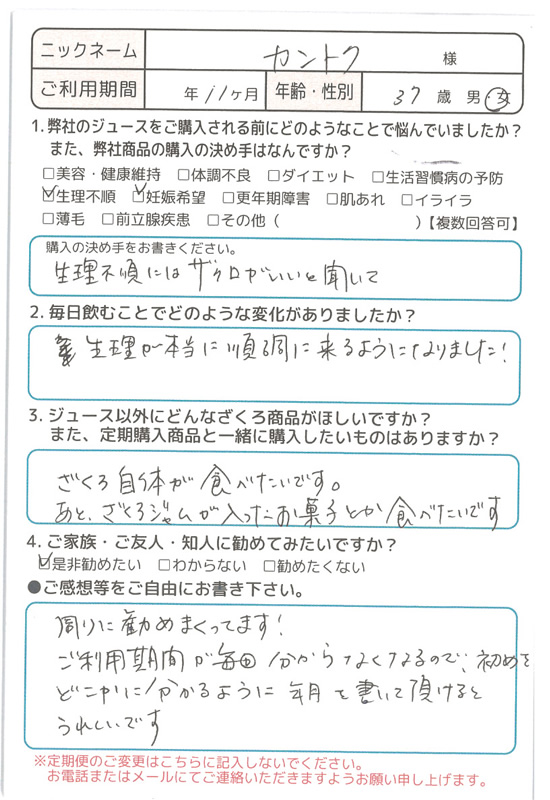 ニックネーム カントク 様
ご利用期間 年 11ヶ月 年齢・性別 37 歳 男・女
1. 弊社のジュースをご購入される前にどのようなことで悩んでいましたか?
また、弊社商品の購入の決め手はなんですか?
□美容・健康維持 □体調不良 □ダイエット □生活習慣病の予防
☑生理不順 ☑妊娠希望 □更年期障害 □肌あれ □イライラ
□薄毛 □前立腺疾患 □その他( )【複数回答可】
購入の決め手をお書きください。
生理不順にはザクロがいいと聞いて
2. 毎日飲むことでどのような変化がありましたか?
生理が本当に順調に来るようになりました!
3. ジュース以外にどんなざくろ商品がほしいですか?
また、定期購入商品と一緒に購入したいものはありますか?
ざくろ自体が食べたいです。
あと、ざくろジャムが入ったお菓子とか食べたいです
4. ご家族・ご友人・知人に勧めてみたいですか?
☑是非勧めたい □わからない □勧めたくない
●ご感想等をご自由にお書き下さい。
周りに勧めまくってます!
ご利用期間が毎回分からなくなるので、初めを
どこかに分かるように年月を書いて頂けると
うれしいです
※定期便のご変更はこちらに記入しないでください。
お電話またはメールにてご連絡いただきますようお願い申し上げます。